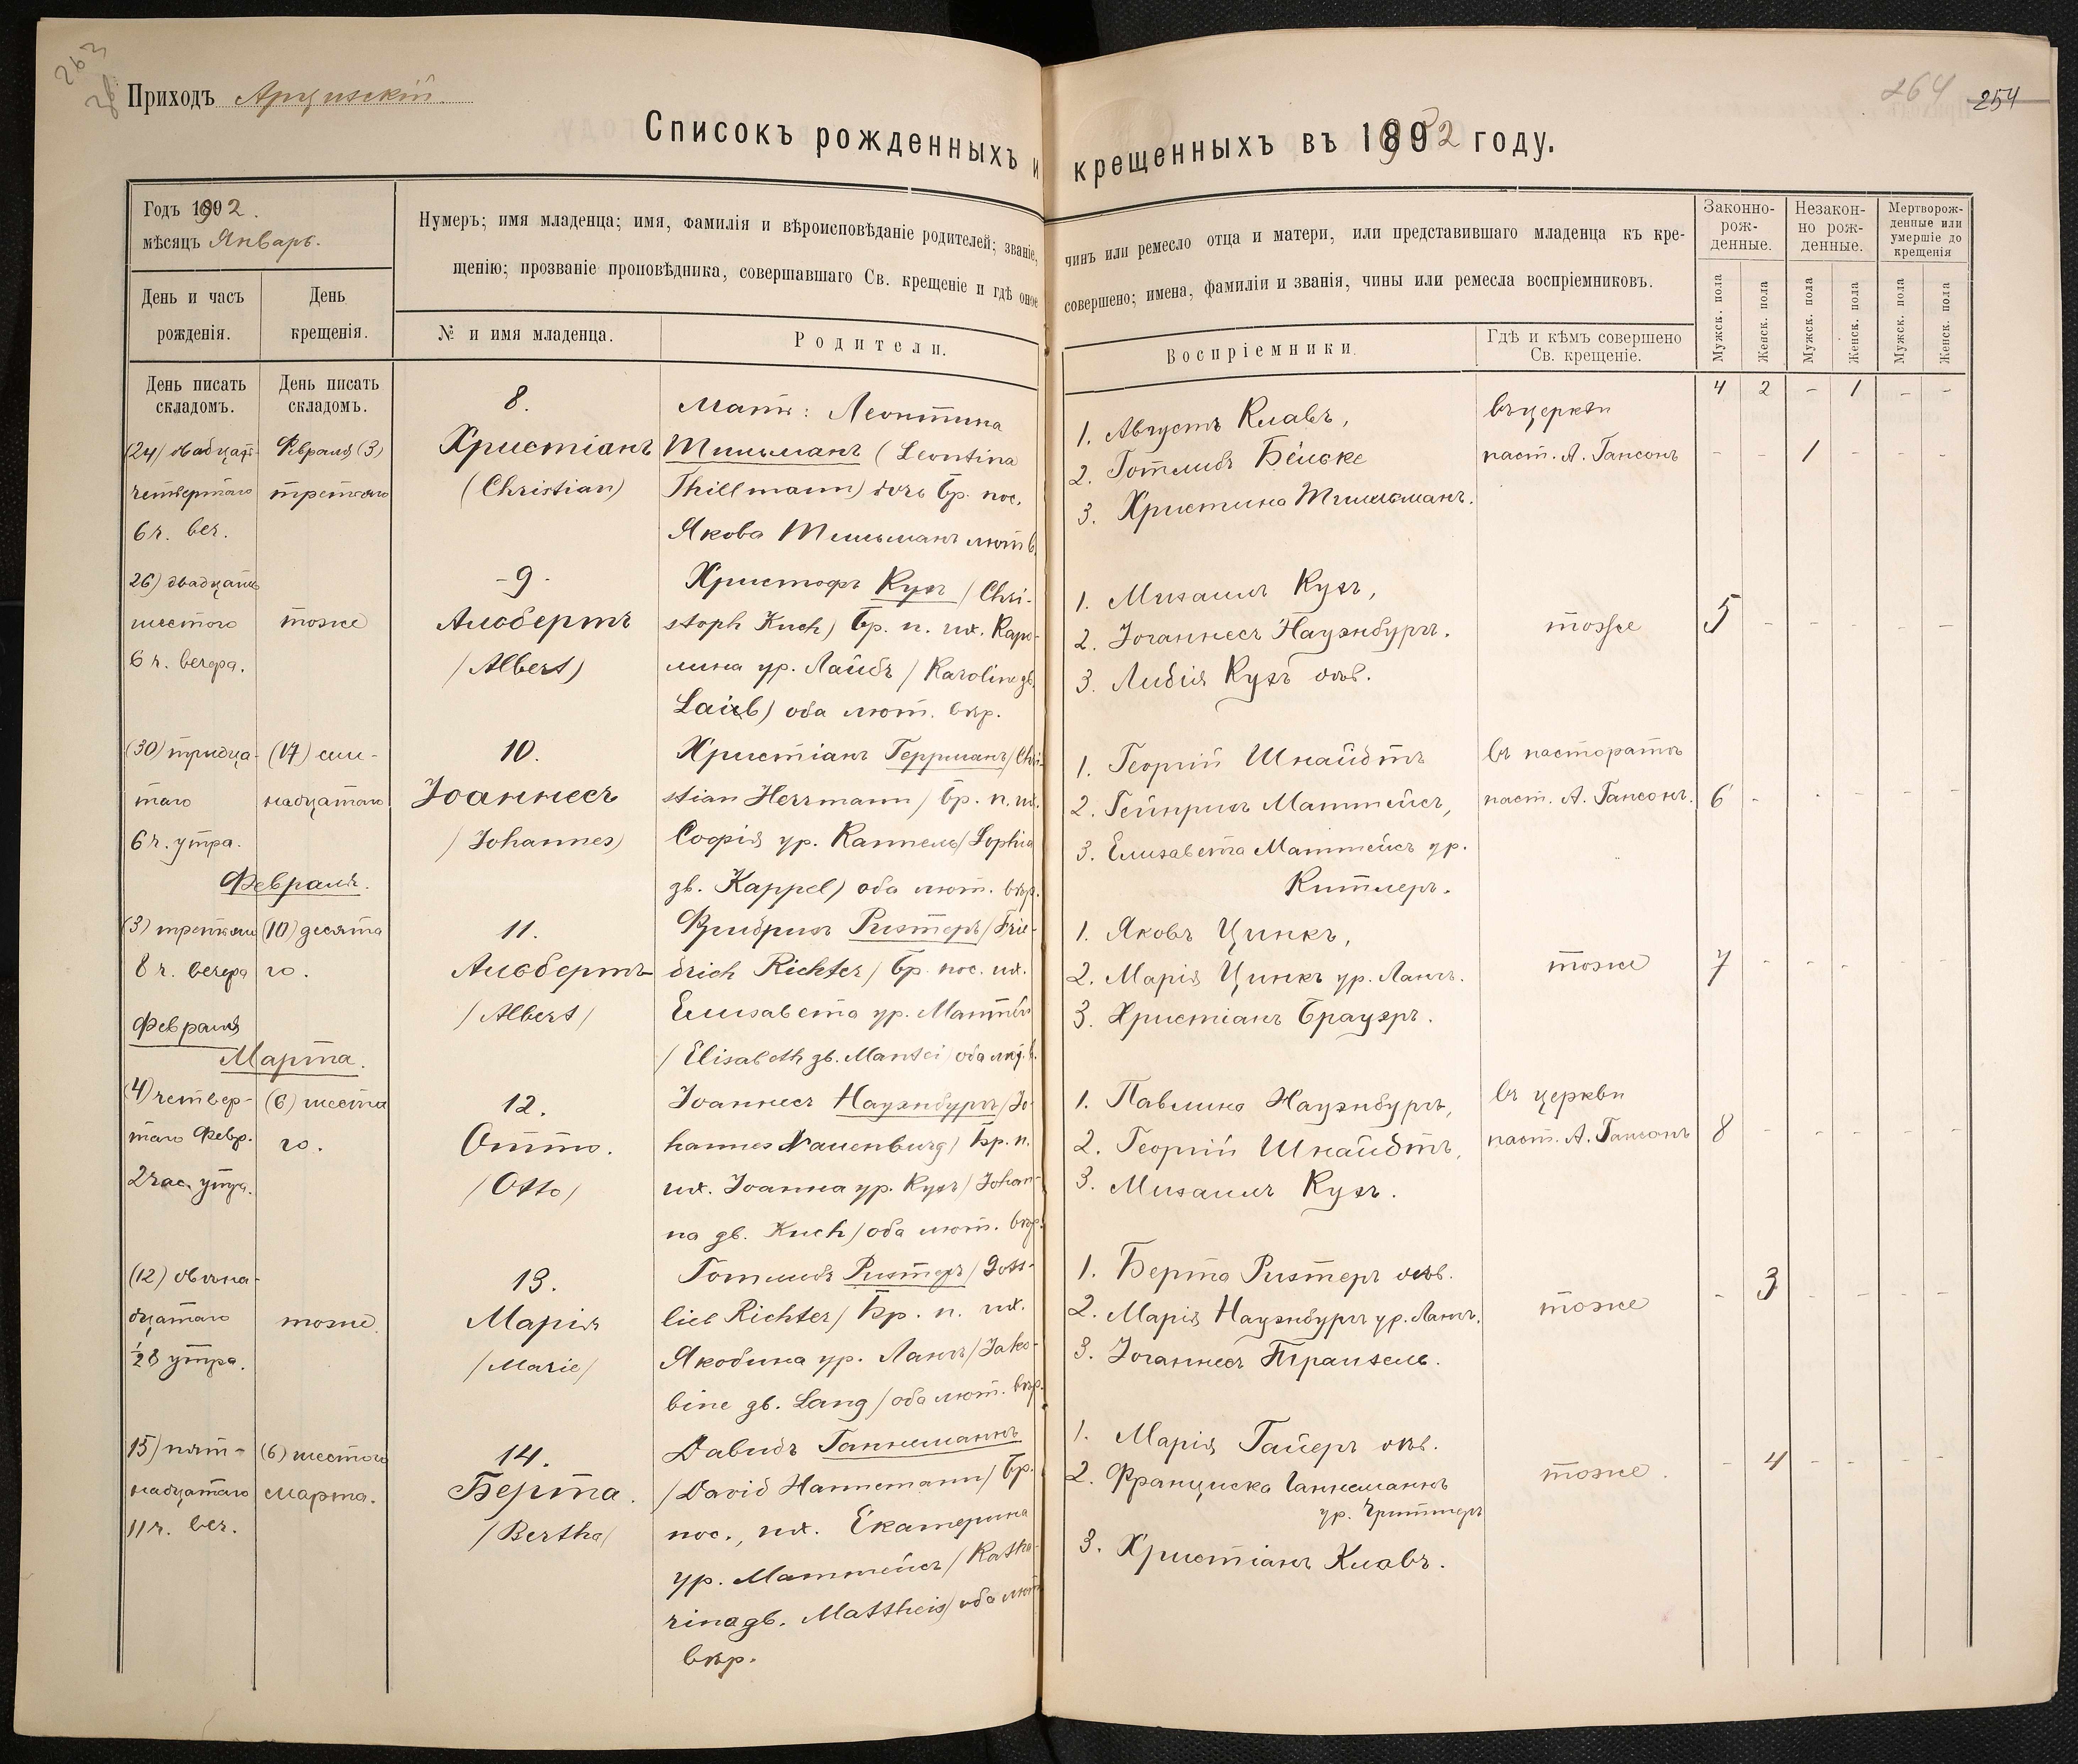 263
Приходъ Арцизскій.
264 254
Списокъ рожденныхъ и крещенныхъ въ 1902 году.
Годъ 1902.
мѣсяцъ Январь.
Нумеръ; имя младенца; имя, фамилія и вѣроисповѣданіе родителей; званіе, чинъ или ремесло отца и матери, или представившаго младенца къ кре-
щенію; прозваніе проповѣдника, совершавшаго Св. крещеніе и гдѣ оное совершено; имена, фамиліи и званія, чины или ремесла воспріемниковъ.
Законно-
рож-
денные.
Незакон-
но рож-
денные.
Мертворож-
денные или
умершіе до
крещенія
День и часъ
рожденія.
День
крещенія.
№ и имя младенца.
Родители.
Воспріемники.
Гдѣ и кѣмъ совершено
Св. крещеніе.
Мужск. пола
Женск. пола
Мужск. пола
Женск. пола
Мужск. пола
Женск. пола
День писать
складомъ.
День писать
складомъ.
4 2 - 1 - -
(24) двадцать
четвертаго
6 ч. веч.
Февраля (3)
третьяго
8.
Христіанъ
(Christian)
Мать: Леонтина
Тильманъ (Leontina
Thillmann) дочь бр. пос.
Якова Тильманъ лют. в.
1. Августъ Клавъ,
2. Готлибъ Бейске
3. Христина Тильманъ.
въ церкви
паст. А. Гансонъ
- - 1 - - -
26) двадцать
шестого
6 ч. вечера.
тоже
-9-
Альбертъ
/Albert)
Христофъ Кухъ / Chri-
stoph Kuch) бр. п. их. Каро-
лина ур. Лайбъ / Karoline gb.
Laib) оба лют. вѣр.
1. Михаилъ Кухъ,
2. Іоганнесъ Науэнбургъ.
3. Лидія Кухъ дѣв.
тоже
5 - - - - -
(30) тридца-
таго
6 ч. утра.
(17) сем-
надцатаго
10.
Іоаннесъ
/Johannes)
Христіанъ Геррманъ / Chri-
stian Herrmann / бр. п. их.
Софія ур. Каппель / Sophia
gb. Kappel) оба лют. вѣр.
1. Георгій Шнайдтъ
2. Гейнрихъ Маттейсъ,
3. Елизавета Маттейсъ ур.
Китлеръ.
въ пасторатѣ
паст. А. Гансонъ.
6 - - - - -
Февраль.
(3) третьяго
8 ч. вечера
Февраля
(10) десята
го.
11.
Альбертъ
/Albert/
Фридрихъ Рихтеръ / Frie-
drich Richter / бр. пос. их.
Елизавета ур. Мантей
/Elisabeth gb. Mantei / оба лют. в.
1. Яковъ Цинкъ,
2. Марія Цинкъ ур. Лангъ.
3. Христіанъ Брауэръ.
тоже
7 - - - - -
Марта.
(4) четвер-
таго Февр.
2 час. утра.
(6) шеста
го.
12.
Отто.
/Otto/
Іоаннесъ Науэнбургъ / Jo-
hannes Nauenburg / бр. п.
их. Іоанна ур. Кухъ / Johan-
na gb. Kuch / оба лют. вѣр.
1. Павлина Науэнбургъ,
2. Георгій Шнайдтъ,
3. Михаилъ Кухъ.
въ церкви
паст. А. Гансонъ
8 - - - - -
(12) двѣна-
дцатаго
1/2 8 утра.
тоже.
13.
Марія
/Marie/
Готлибъ Рихтеръ / Gott-
lieb Richter / бр. п. их.
Якобина ур. Лангъ / Jako-
bine gb. Lang / оба лют. вѣр.
1. Берта Рихтеръ дѣв.
2. Марія Науэнбургъ ур. Лангъ.
3. Іоганнесъ Транзель.
тоже
- 3 - - - -
15) пят-
надцатаго
11 ч. веч.
(6) шестого
марта.
14.
Берта.
/Bertha/
Давидъ Ганнеманнъ
/David Hannemann / бр.
пос., их. Екатерина
ур. Маттейсъ / Katha-
rina gb. Mattheis / оба лют.
вѣр.
1. Марія Гайеръ дѣв.
2. Франциска Ганнеманнъ
ур.
3. Христіанъ Клавъ.
тоже.
- 4 - - - -